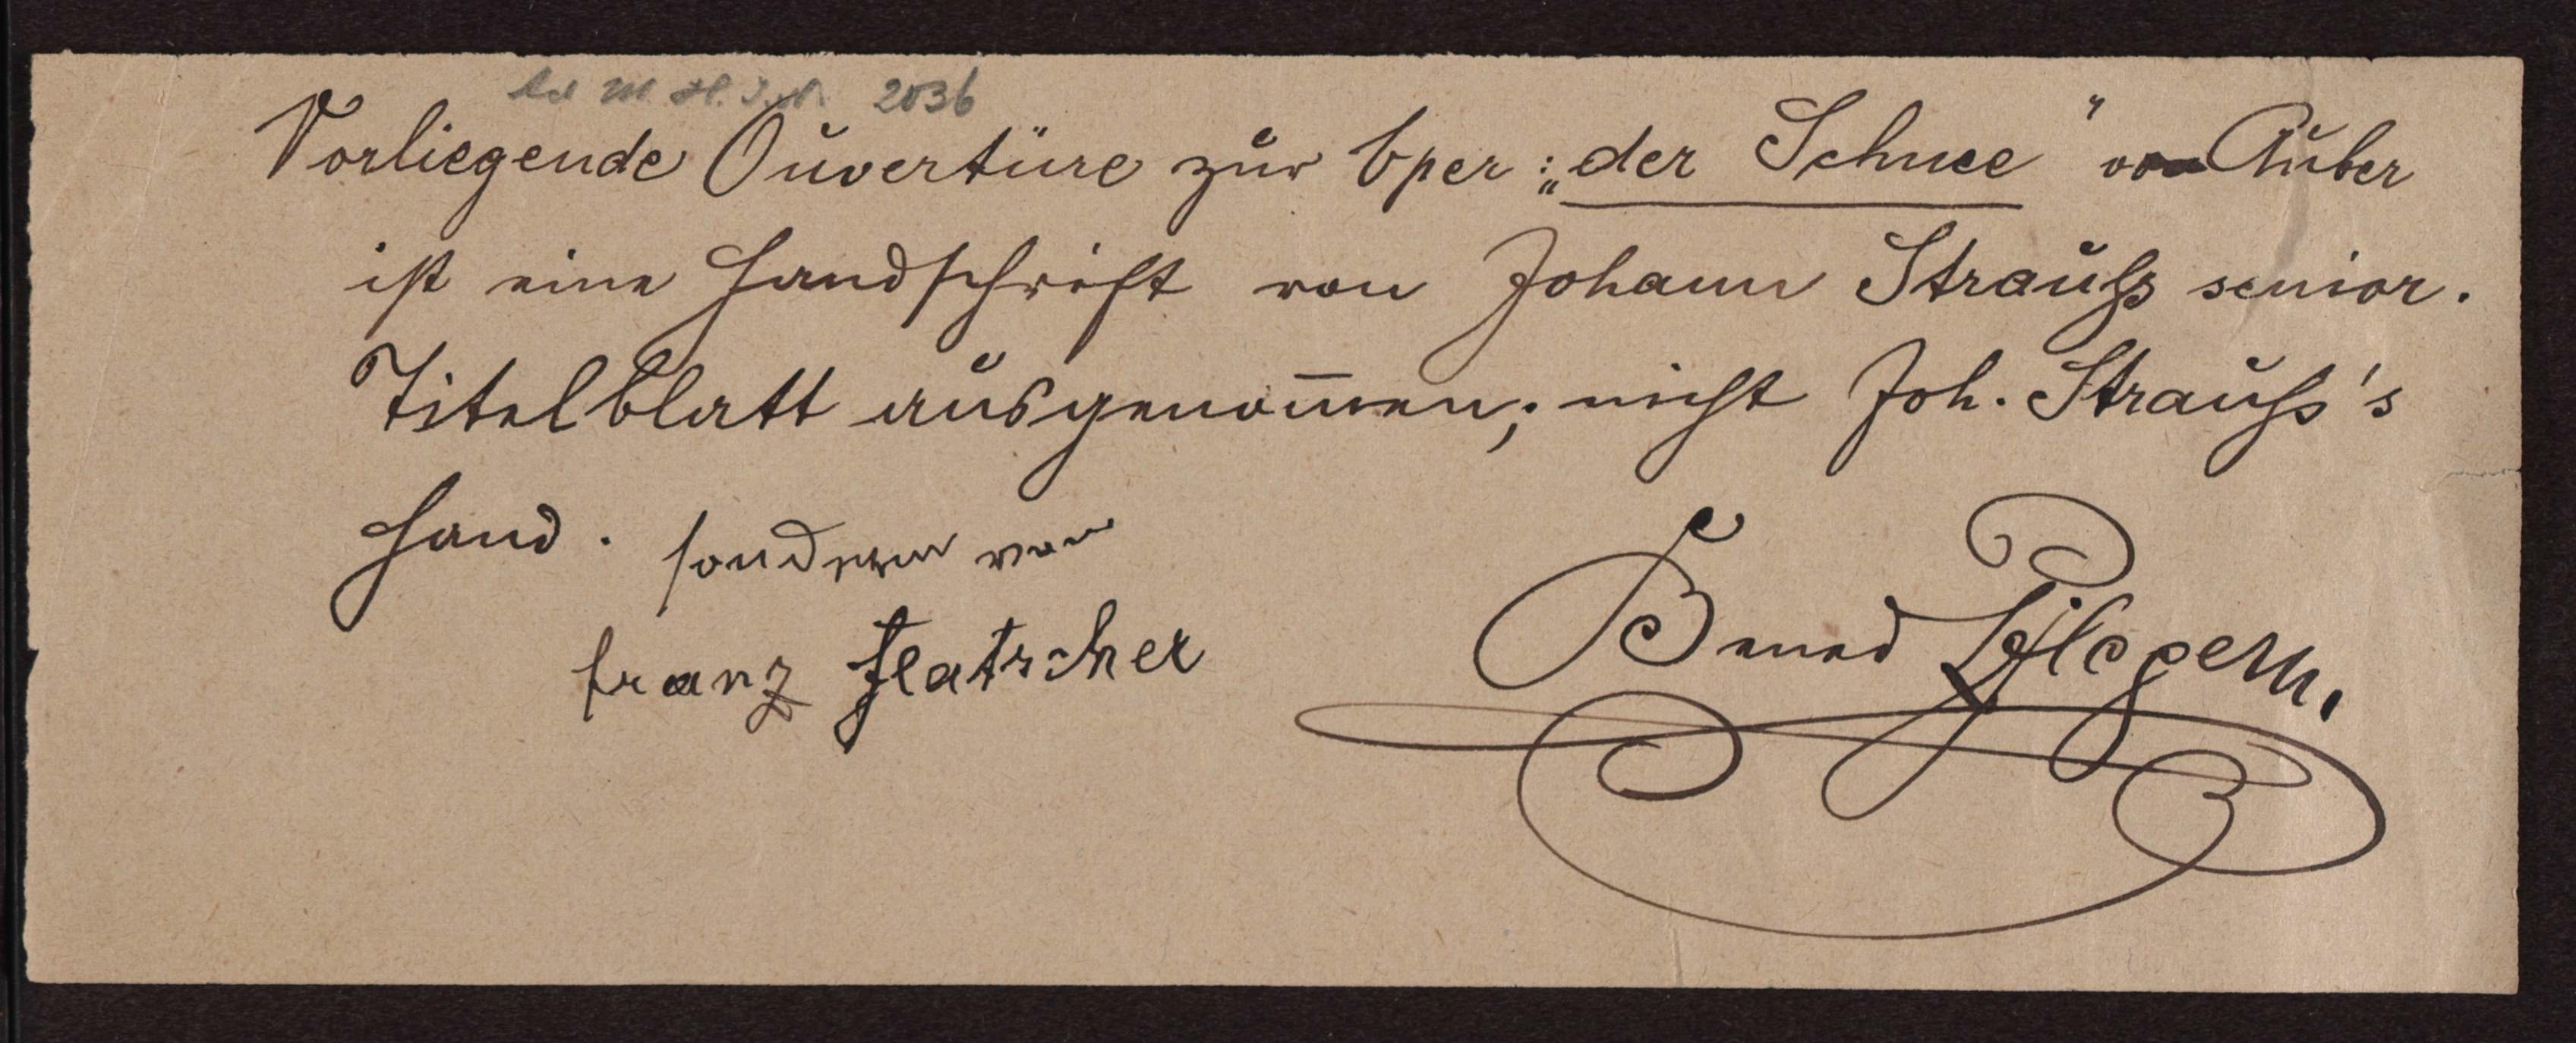 Ad M. H. I. N. 2036
Vorliegende Ouvertüre zur Oper: „der Schnee" von Auber
ist eine Handschrift von Johann Strauß senior.
Titelblatt ausgenom̄en; nicht Joh. Strauß's
Hand. sondern von
franz flatscher